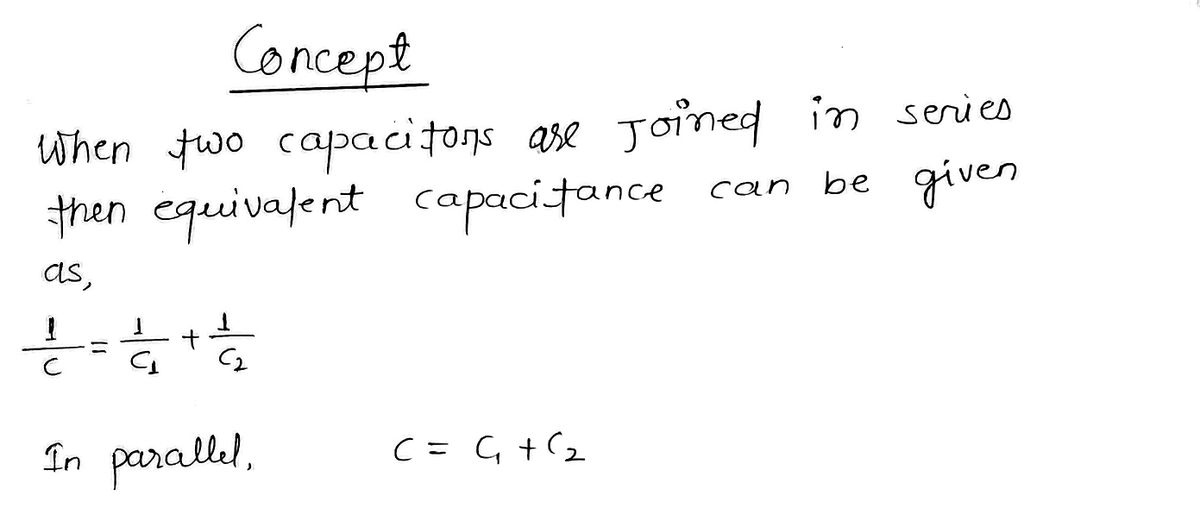 Concept
When two capacitors are Joined in series
then equivalent capacitance can be given
as,
1/C = 1/C₁ + 1/C₂
In parallel, C = C₁ + C₂